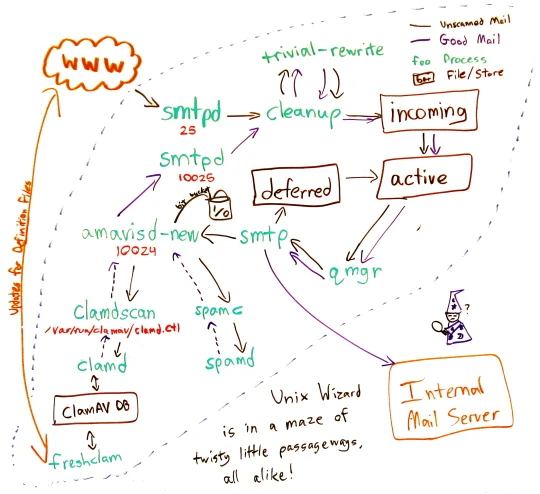 Unscanned Mail
Good Mail
foo Process
bar File/Store
WWW
trivial-rewrite
smtpd
25
cleanup
incoming
smtpd
10025
deferred
active
big bucket
I/O
amavisd-new
10024
smtp
qmgr
Updates for Definition Files
Clamdscan
/var/run/clamav/clamd.ctl
spamc
clamd
spamd
?
ClamAV DB
freshclam
Internal
Mail Server
Unix Wizard
is in a maze of
twisty little passageways,
all alike!